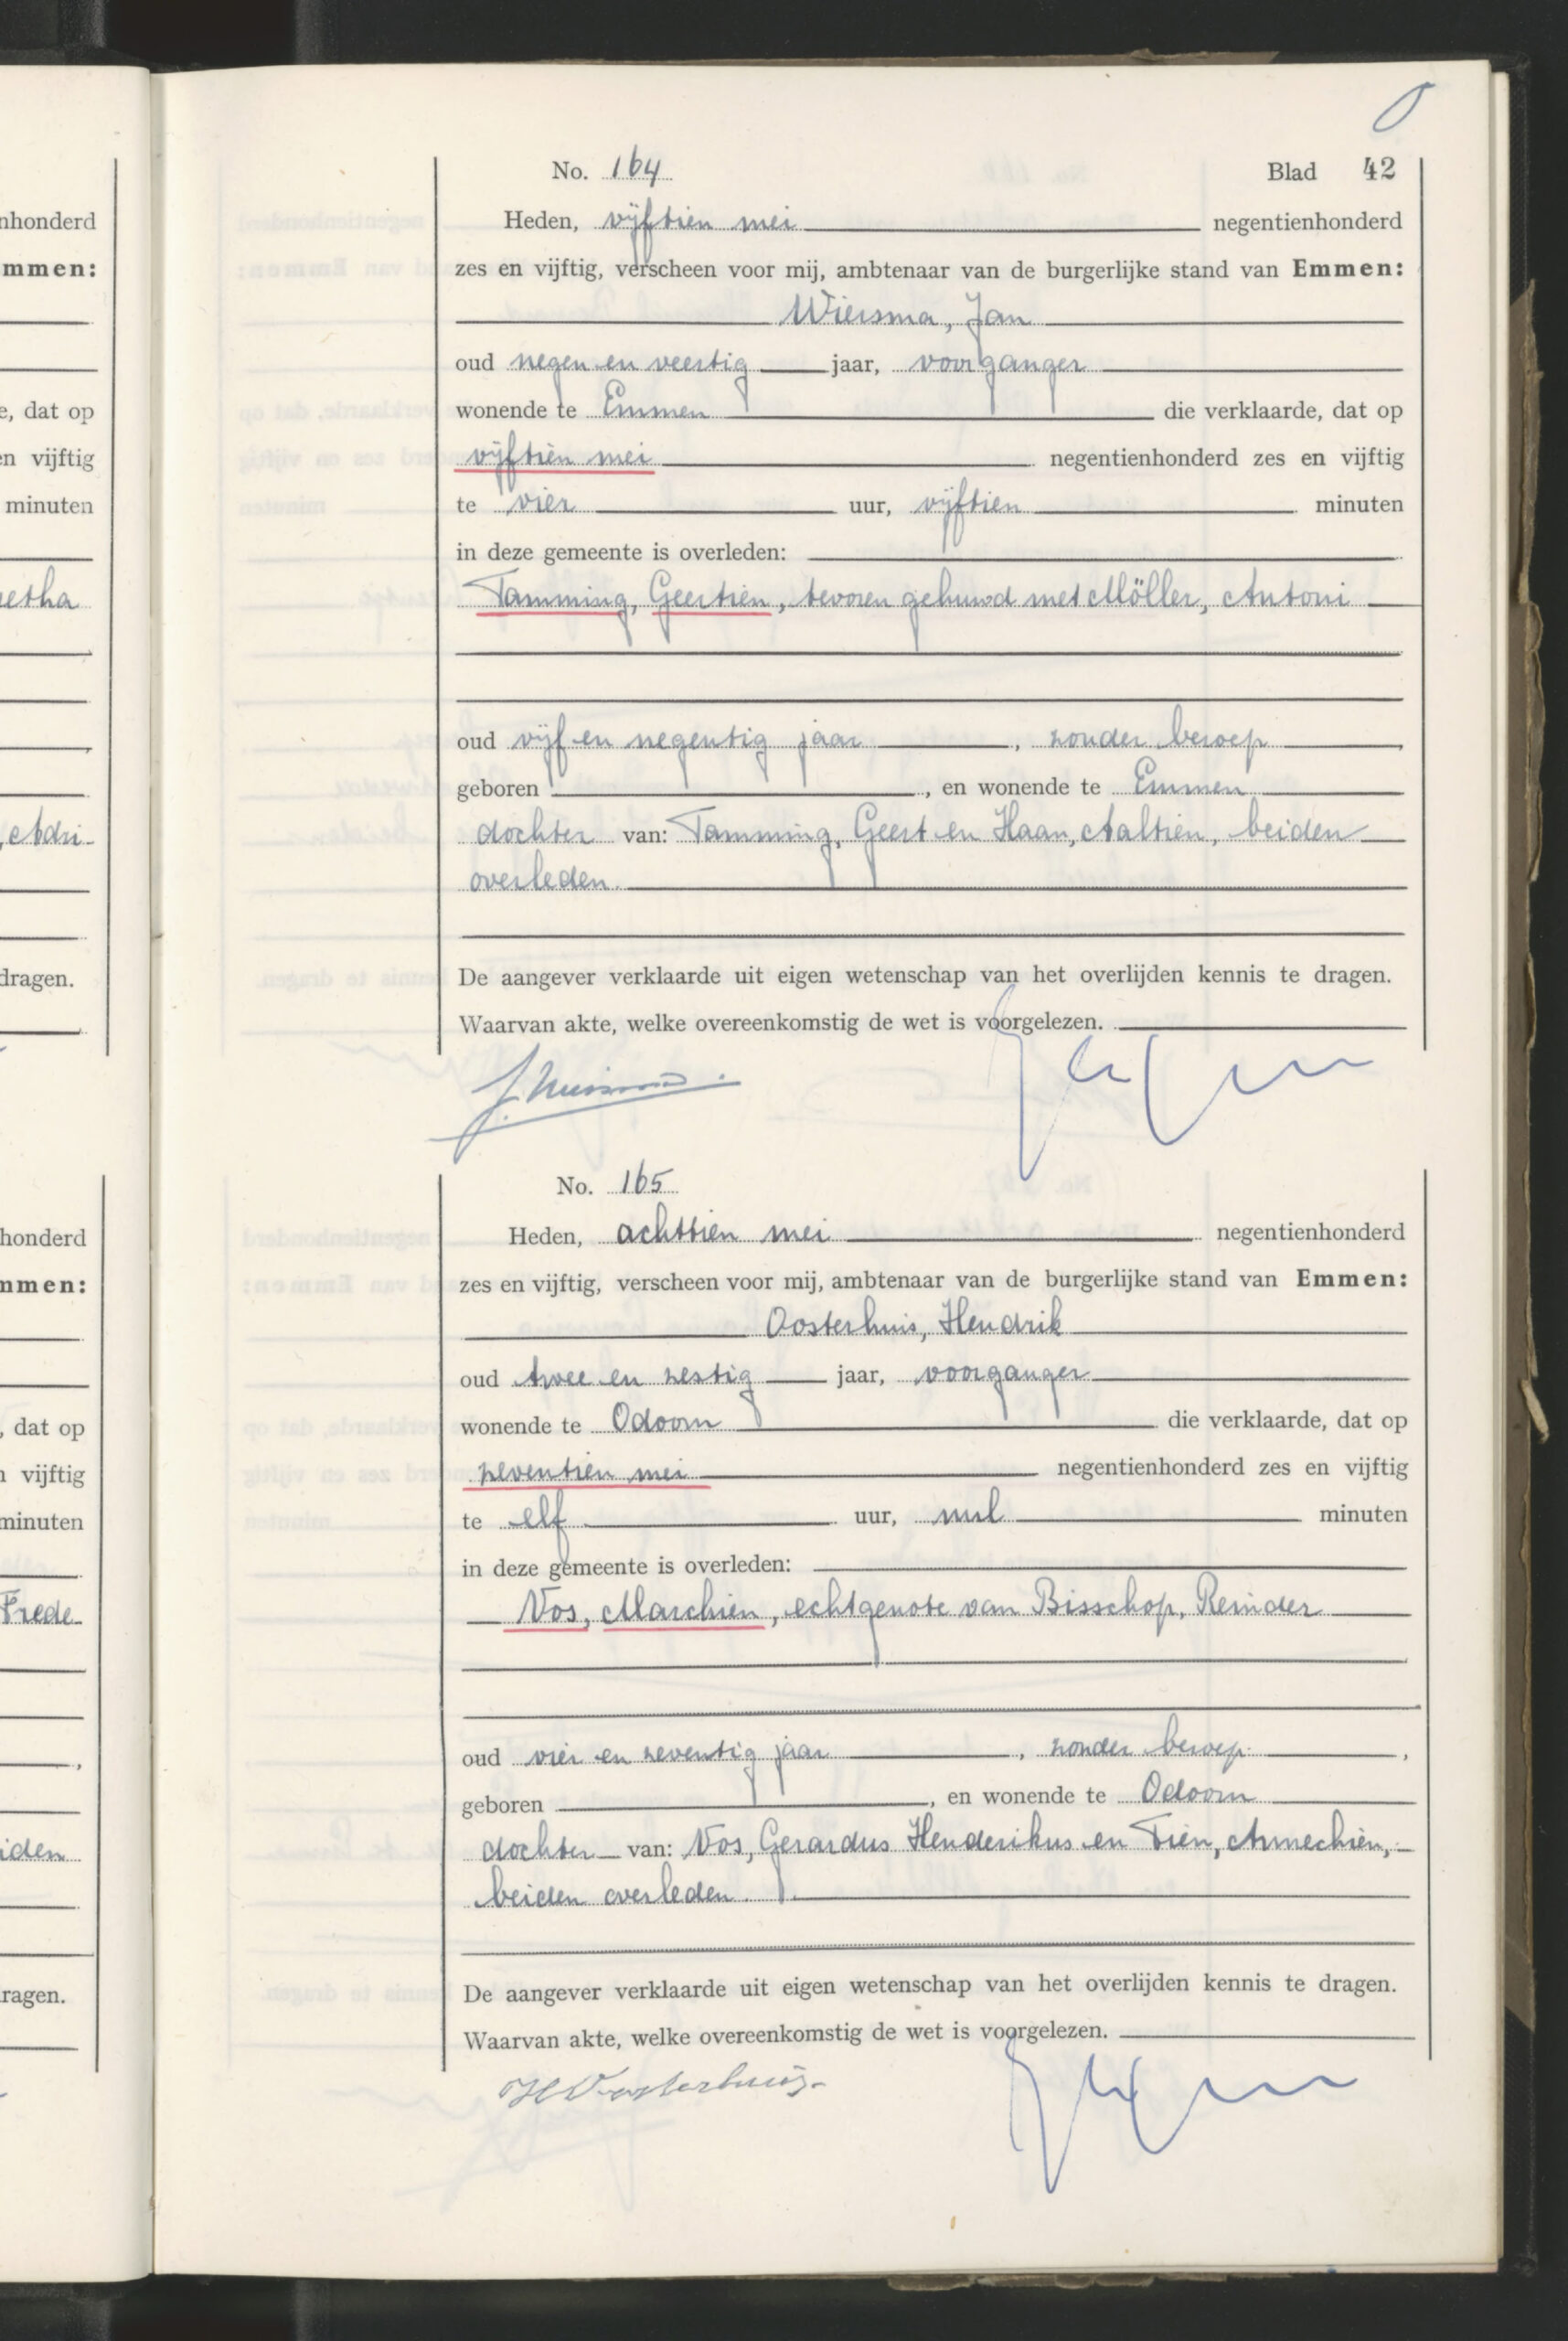 nhonderd
mmen:
e, dat op
en vijftig
minuten
retha
, Adri-
dragen.
honderd
mmen:
, dat op
n vijftig
minuten
Frede-
iden
ragen.
No. 164 Blad 42
Heden, vijftien mei negentienhonderd
zes en vijftig, verscheen voor mij, ambtenaar van de burgerlijke stand van Emmen:
Wiersma, Jan
oud negen en veertig jaar, voorganger
wonende te Emmen die verklaarde, dat op
vijftien mei negentienhonderd zes en vijftig
te vier uur, vijftien minuten
in deze gemeente is overleden:
Tamming, Geertien, tevoren gehuwd met Möller, Antoni
oud vijf en negentig jaar, zonder beroep,
geboren , en wonende te Emmen
dochter van: Tamming, Geert en Haan, Aaltien, beiden
overleden.
De aangever verklaarde uit eigen wetenschap van het overlijden kennis te dragen.
Waarvan akte, welke overeenkomstig de wet is voorgelezen.
No. 165
Heden, achttien mei negentienhonderd
zes en vijftig, verscheen voor mij, ambtenaar van de burgerlijke stand van Emmen:
Oosterhuis, Hendrik
oud twee en zestig jaar, voorganger
wonende te Odoorn die verklaarde, dat op
zeventien mei negentienhonderd zes en vijftig
te elf uur, nul minuten
in deze gemeente is overleden:
Vos, Marchien, echtgenote van Bisschop, Reinder
oud vier en zeventig jaar, zonder beroep,
geboren , en wonende te Odoorn
dochter van: Vos, Gerardus Henderikus en Tien, Annechien,
beiden overleden.
De aangever verklaarde uit eigen wetenschap van het overlijden kennis te dragen.
Waarvan akte, welke overeenkomstig de wet is voorgelezen.
H Oosterhuis.